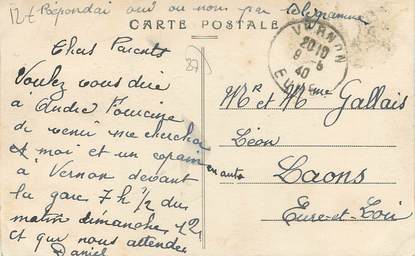 Répondai oui ou nous par télégramme
CARTE POSTALE
VERNON
20 10
9 - 5
40
EURE
Chers Parents
Voulez vous dire
à André Fourcine
de venir me chercher
et moi et un copain en auto
à Vernon devant
la gare 7h 1/2 du
matin dimanche 12
et que nous attendes
Daniel
37
Mr et Mme Gallais
Léon
Laons
Eure-et-Loir